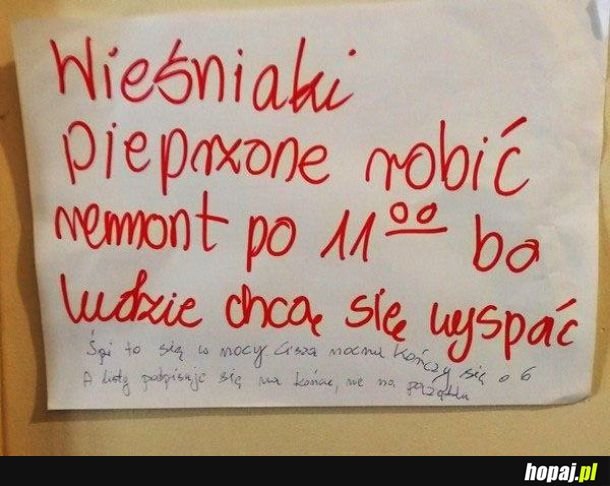 Wieśniaki
pieprxone robić
remont po 11 00 bo
ludzie chcą się wyspać
Śpi to się w nocy Cisza nocna kończy się o 6
A listy podpisuje się na końcu, nie na początku
hopaj.pl